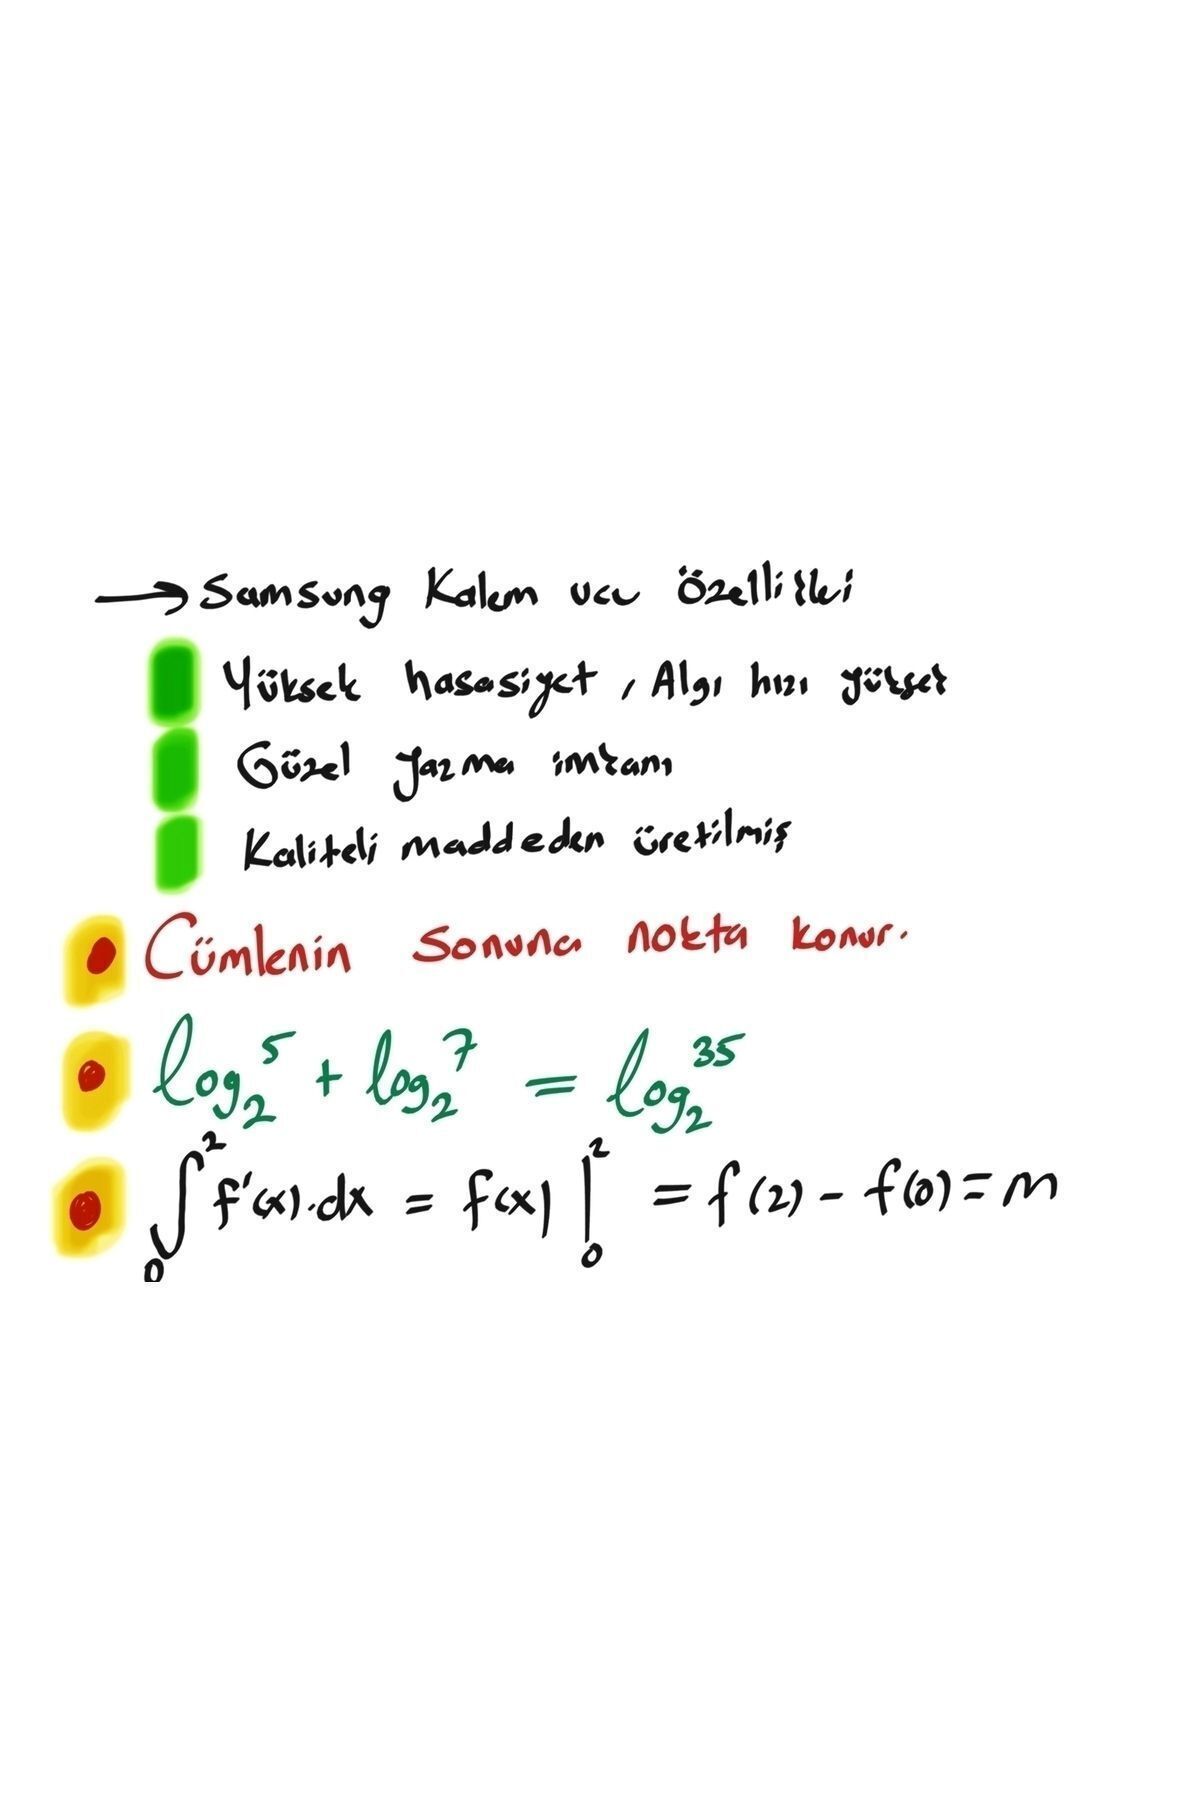 → Samsung Kalem ucu Özellikleri
Yüksek hasasiyet, Algı hızı yüksek
Güzel yazma imkanı
Kaliteli maddeden üretilmiş
• Cümlenin sonuna nokta konur.
• log₂⁵ + log₂⁷ = log₂³⁵
• ∫₀² f'(x).dx = f(x) |₀² = f(2) - f(0) = m